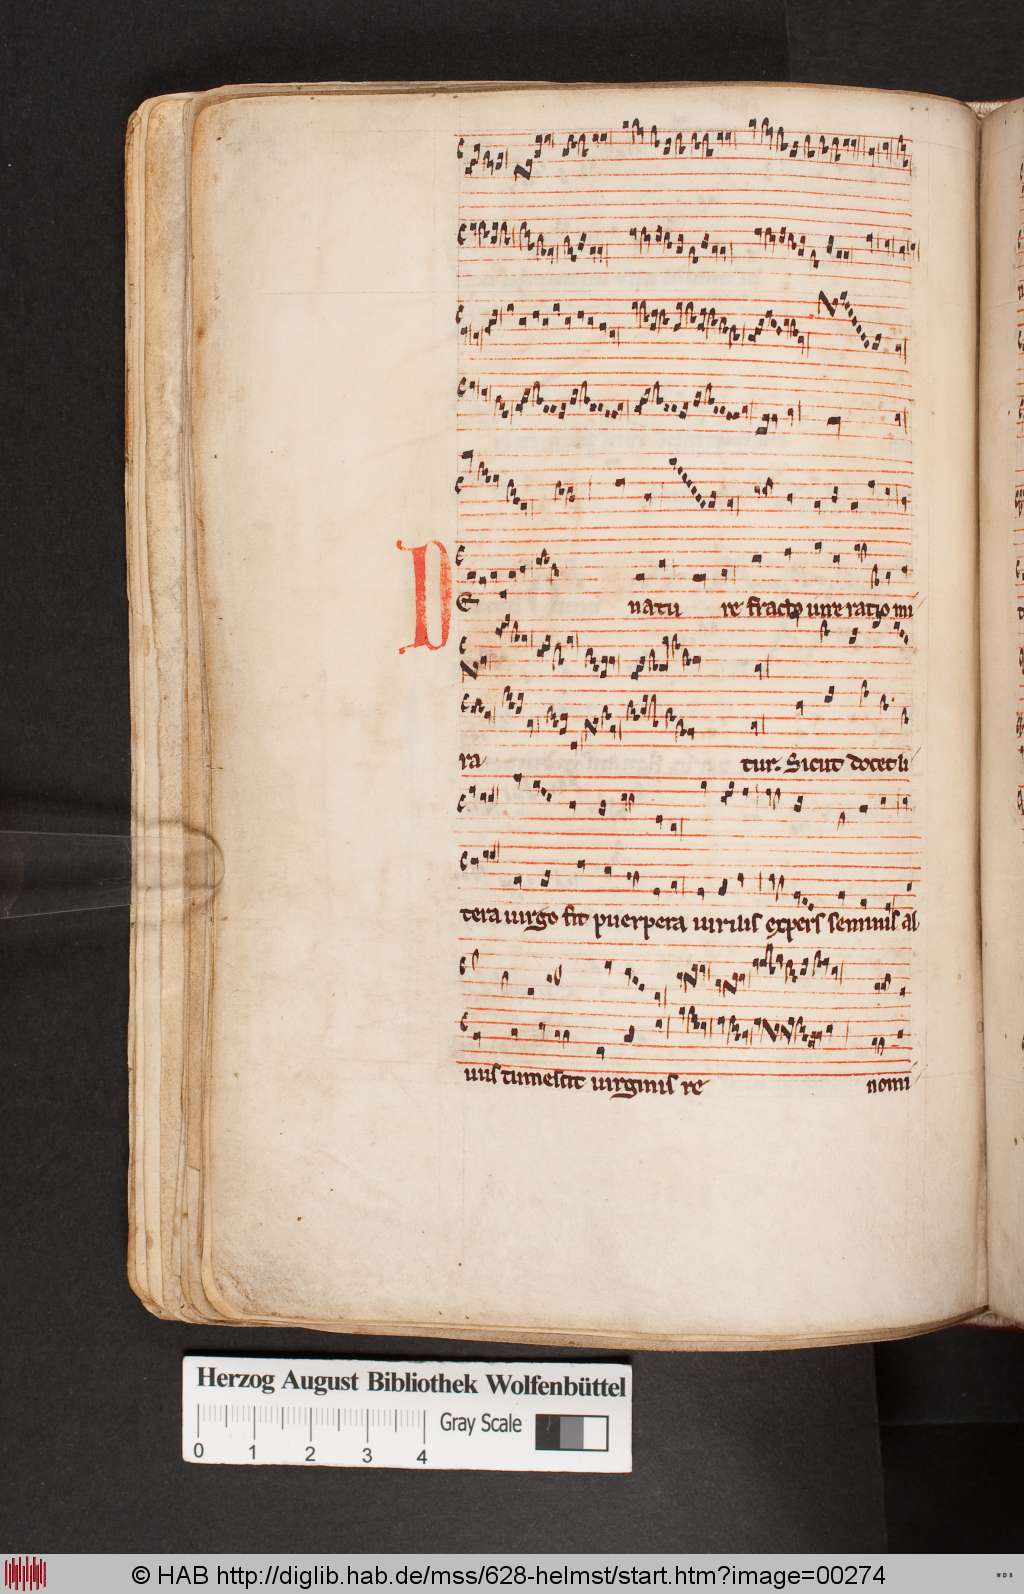 DE natu re fracto iure ratio mi
ra tur. Sicut docet li
tera uirgo fit puerpera uirilis expers seminis al
uus tumescit uirginis re nomi
Herzog August Bibliothek Wolfenbüttel
Gray Scale
0 1 2 3 4
© HAB http://diglib.hab.de/mss/628-helmst/start.htm?image=00274